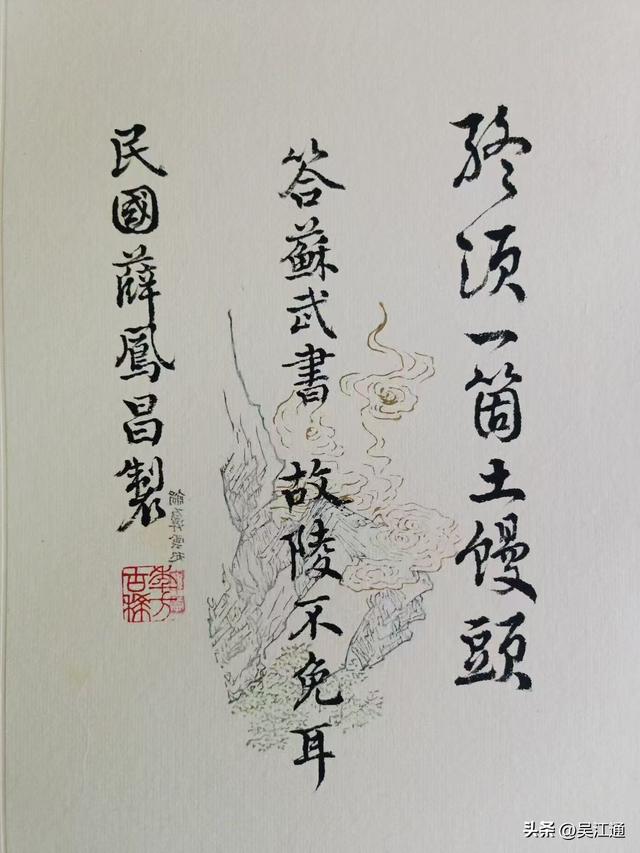 终须一箇土馒頭
答蘇武書 故陵不免耳
民國薛鳳昌製
头条 @吴江通